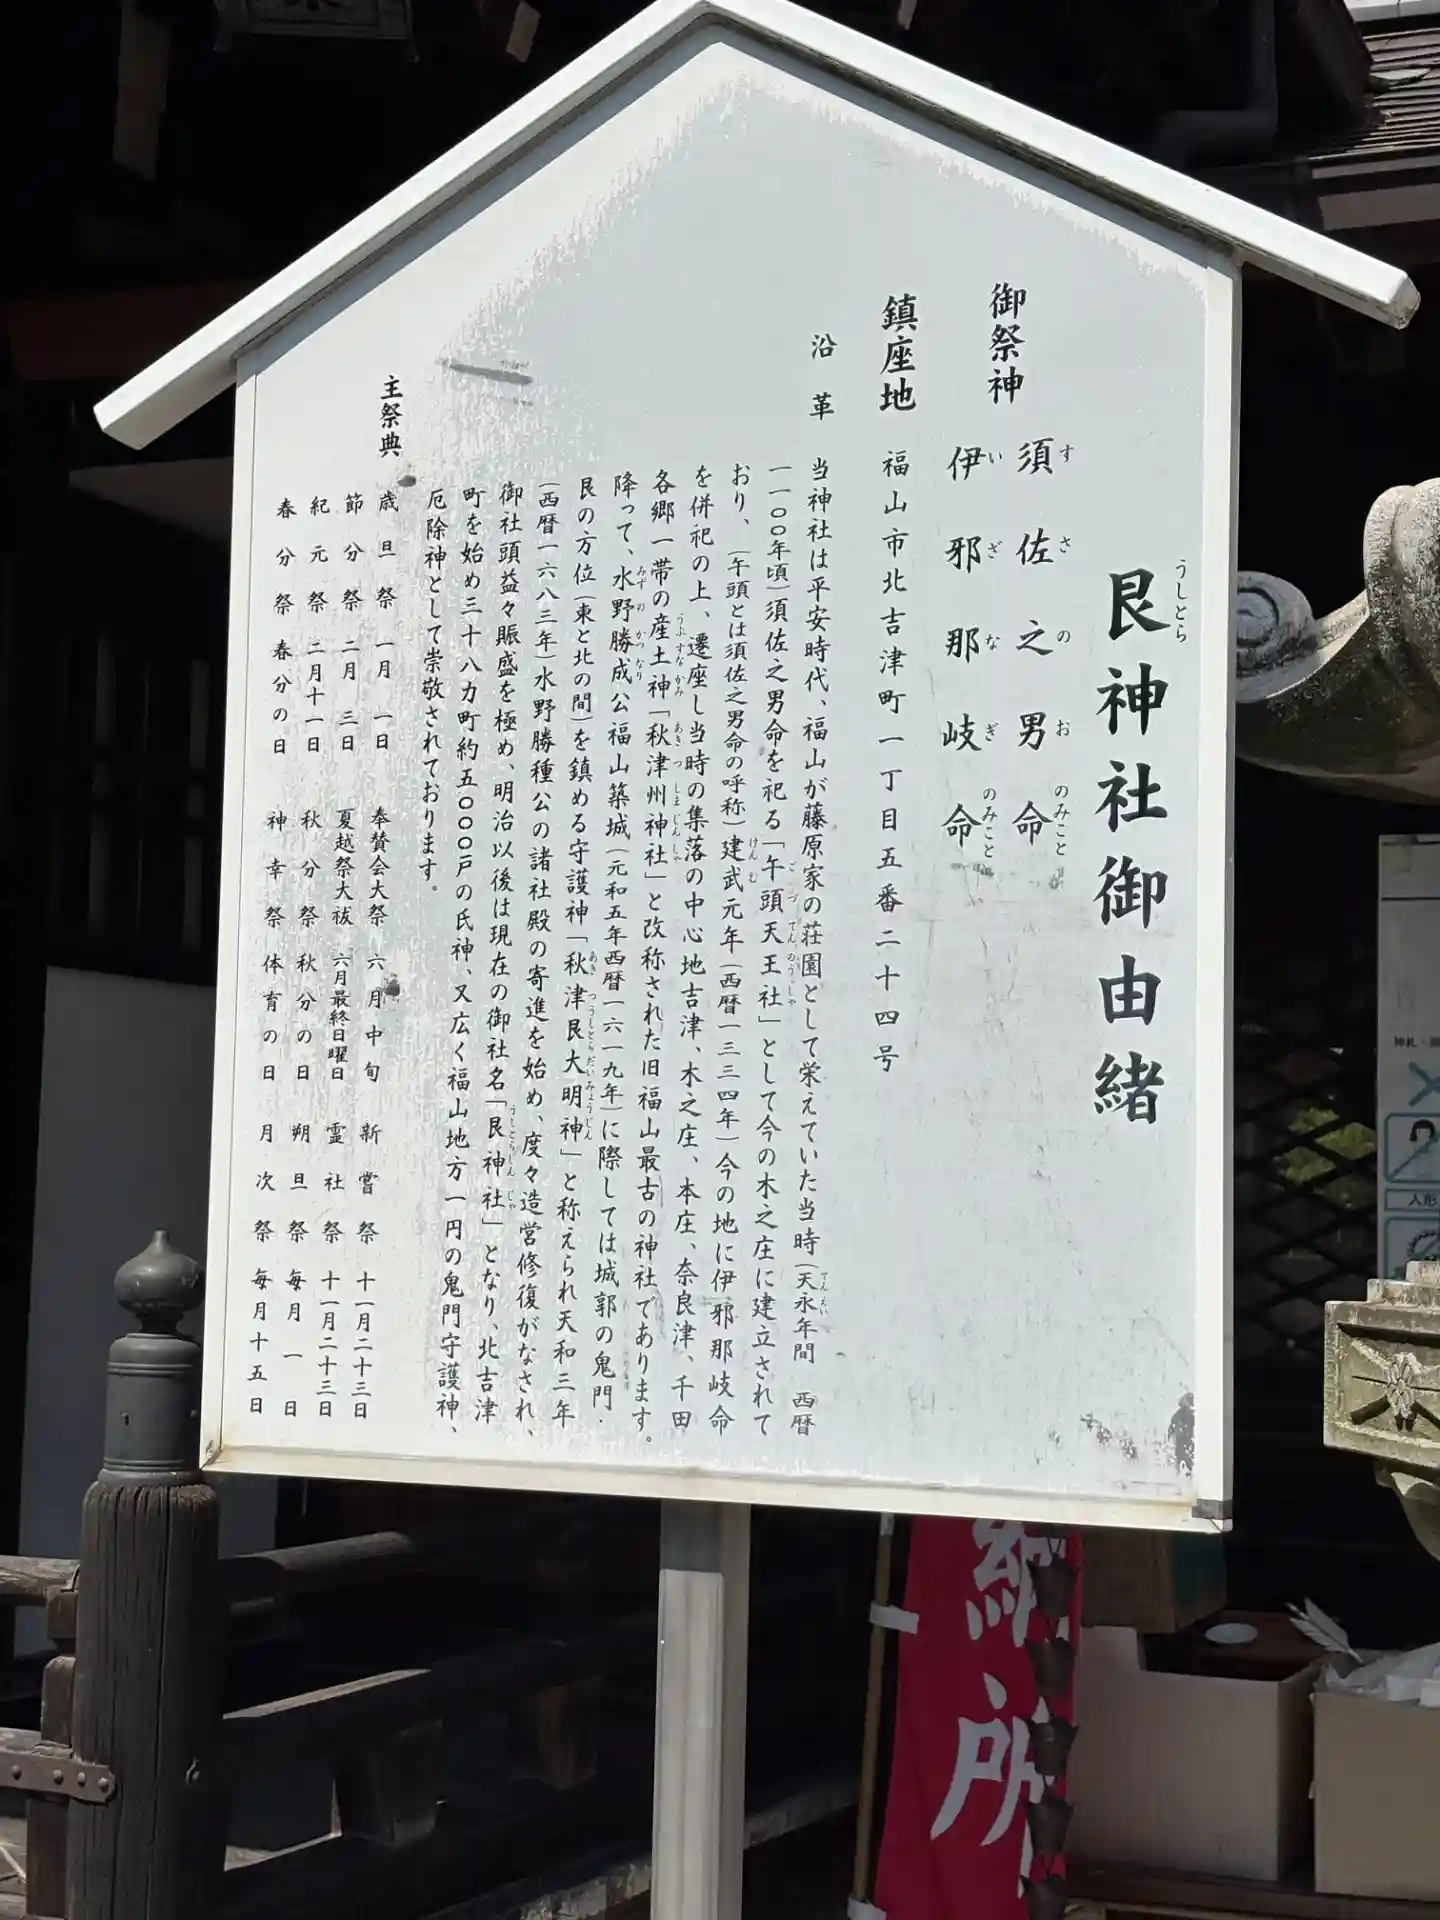 艮神社御由緒
うしとら
御祭神
須佐之男命
すさのおのみこと
伊邪那岐命
いざなぎのみこと
鎮座地 福山市北吉津町一丁目五番二十四号
沿革
当神社は平安時代、福山が藤原家の荘園として栄えていた当時(天永年間 西暦
一一〇〇年頃)須佐之男命を祀る「午頭天王社」として今の木之庄に建立されて
おり、(午頭とは須佐之男命の呼称)建武元年(西暦一三三四年)今の地に伊邪那岐命
を併祀の上、遷座し当時の集落の中心地吉津、木之庄、本庄、奈良津、千田
各郷一帯の産土神「秋津州神社」と改称された旧福山最古の神社であります。
降って、水野勝成公福山築城(元和五年西暦一六一九年)に際しては城郭の鬼門・
艮の方位(東と北の間)を鎮める守護神「秋津艮大明神」と称えられ天和三年
(西暦一六八三年)水野勝種公の諸社殿の寄進を始め、度々造営修復がなされ、
御社頭益々賑盛を極め、明治以後は現在の御社名「艮神社」となり、北吉津
町を始め三十八カ町約五〇〇〇戸の氏神、又広く福山地方一円の鬼門守護神、
厄除神として崇敬されております。
主祭典
歳旦祭 一月一日 奉賛会大祭 六月中旬 新嘗祭 十一月二十三日
節分祭 二月三日 夏越祭大祓 六月最終日曜日 霊社祭 十一月二十三日
紀元祭 二月十一日 秋分祭 秋分の日 朔旦祭 毎月一日
春分祭 春分の日 神幸祭 体育の日 月次祭 毎月十五日
納所
人形